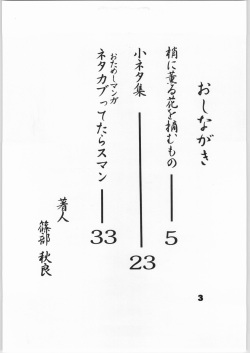 おしながき
梢に薫る花を摘むもの 5
小ネタ集 23
おためしマンガ
ネタカブってたらスマン 33
著人
篠部 秋良
3